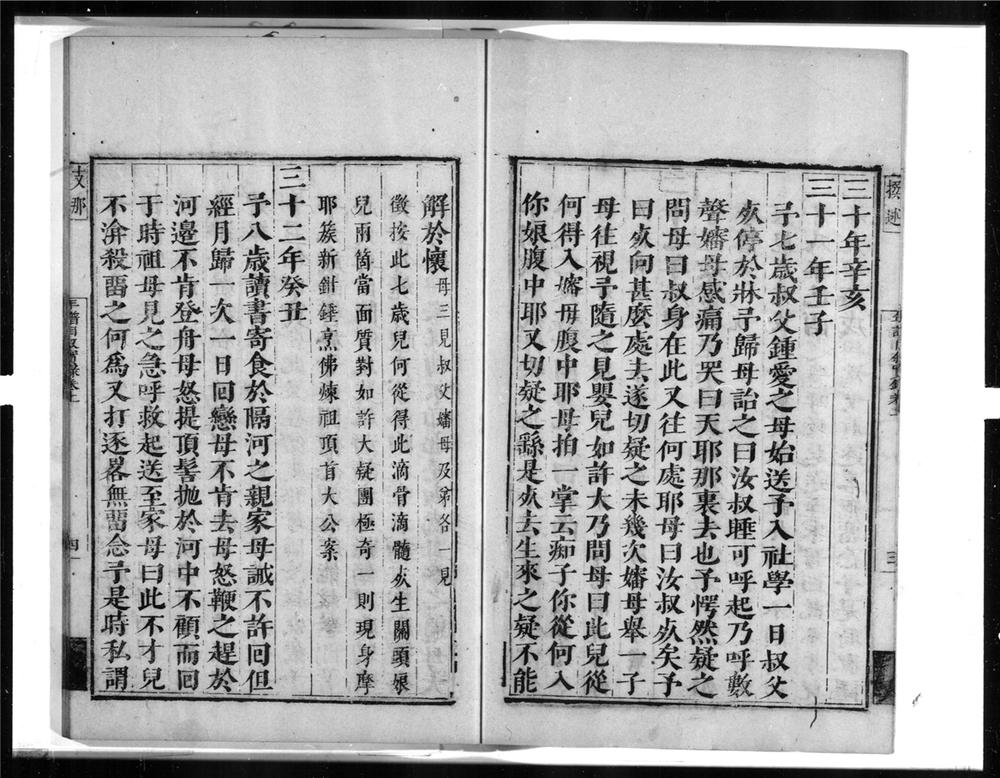 撰述
三十年辛亥
三十一年壬子
予七歲叔父鍾愛之母始送予入社學一日叔父
死停於牀予歸母詒之曰汝叔睡可呼起乃呼數
聲嬸母感痛乃哭曰天耶那裏去也予愕然疑之
問母曰叔身在此又往何處耶母曰汝叔死矣予
曰死向甚麼處去遂切疑之未幾次嬸母舉一子
母往視予隨之見嬰兒如許大乃問母曰此兒從
何得入嬸母腹中耶母拍一掌云痴子你從何入
你娘腹中耶又切疑之繇是死去生來之疑不能
三
解於懷母三見叔父嬸母及弟各一見
徵按此七歲兒何從得此滴骨滴髓死生關頭娘
兒兩箇當面質對如許大疑團極奇一則現身摩
耶蔟新鉗鎚烹佛煉祖頂首大公案
三十二年癸丑
予八歲讀書寄食於隔河之親家母誡不許回但
經月歸一次一日回戀母不肯去母怒鞭之趕於
河邊不肯登舟母怒提頂髻拋於河中不顧而回
于時祖母見之急呼救起送至家母曰此不才兒
不渰殺留之何為又打逐畧無留念予是時私謂
支那
年譜自叙實錄卷上
四